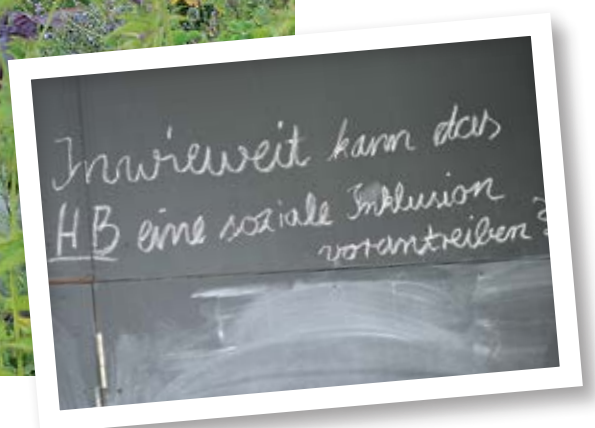 Inwieweit kann das
HB eine soziale Inklusion
vorantreiben?